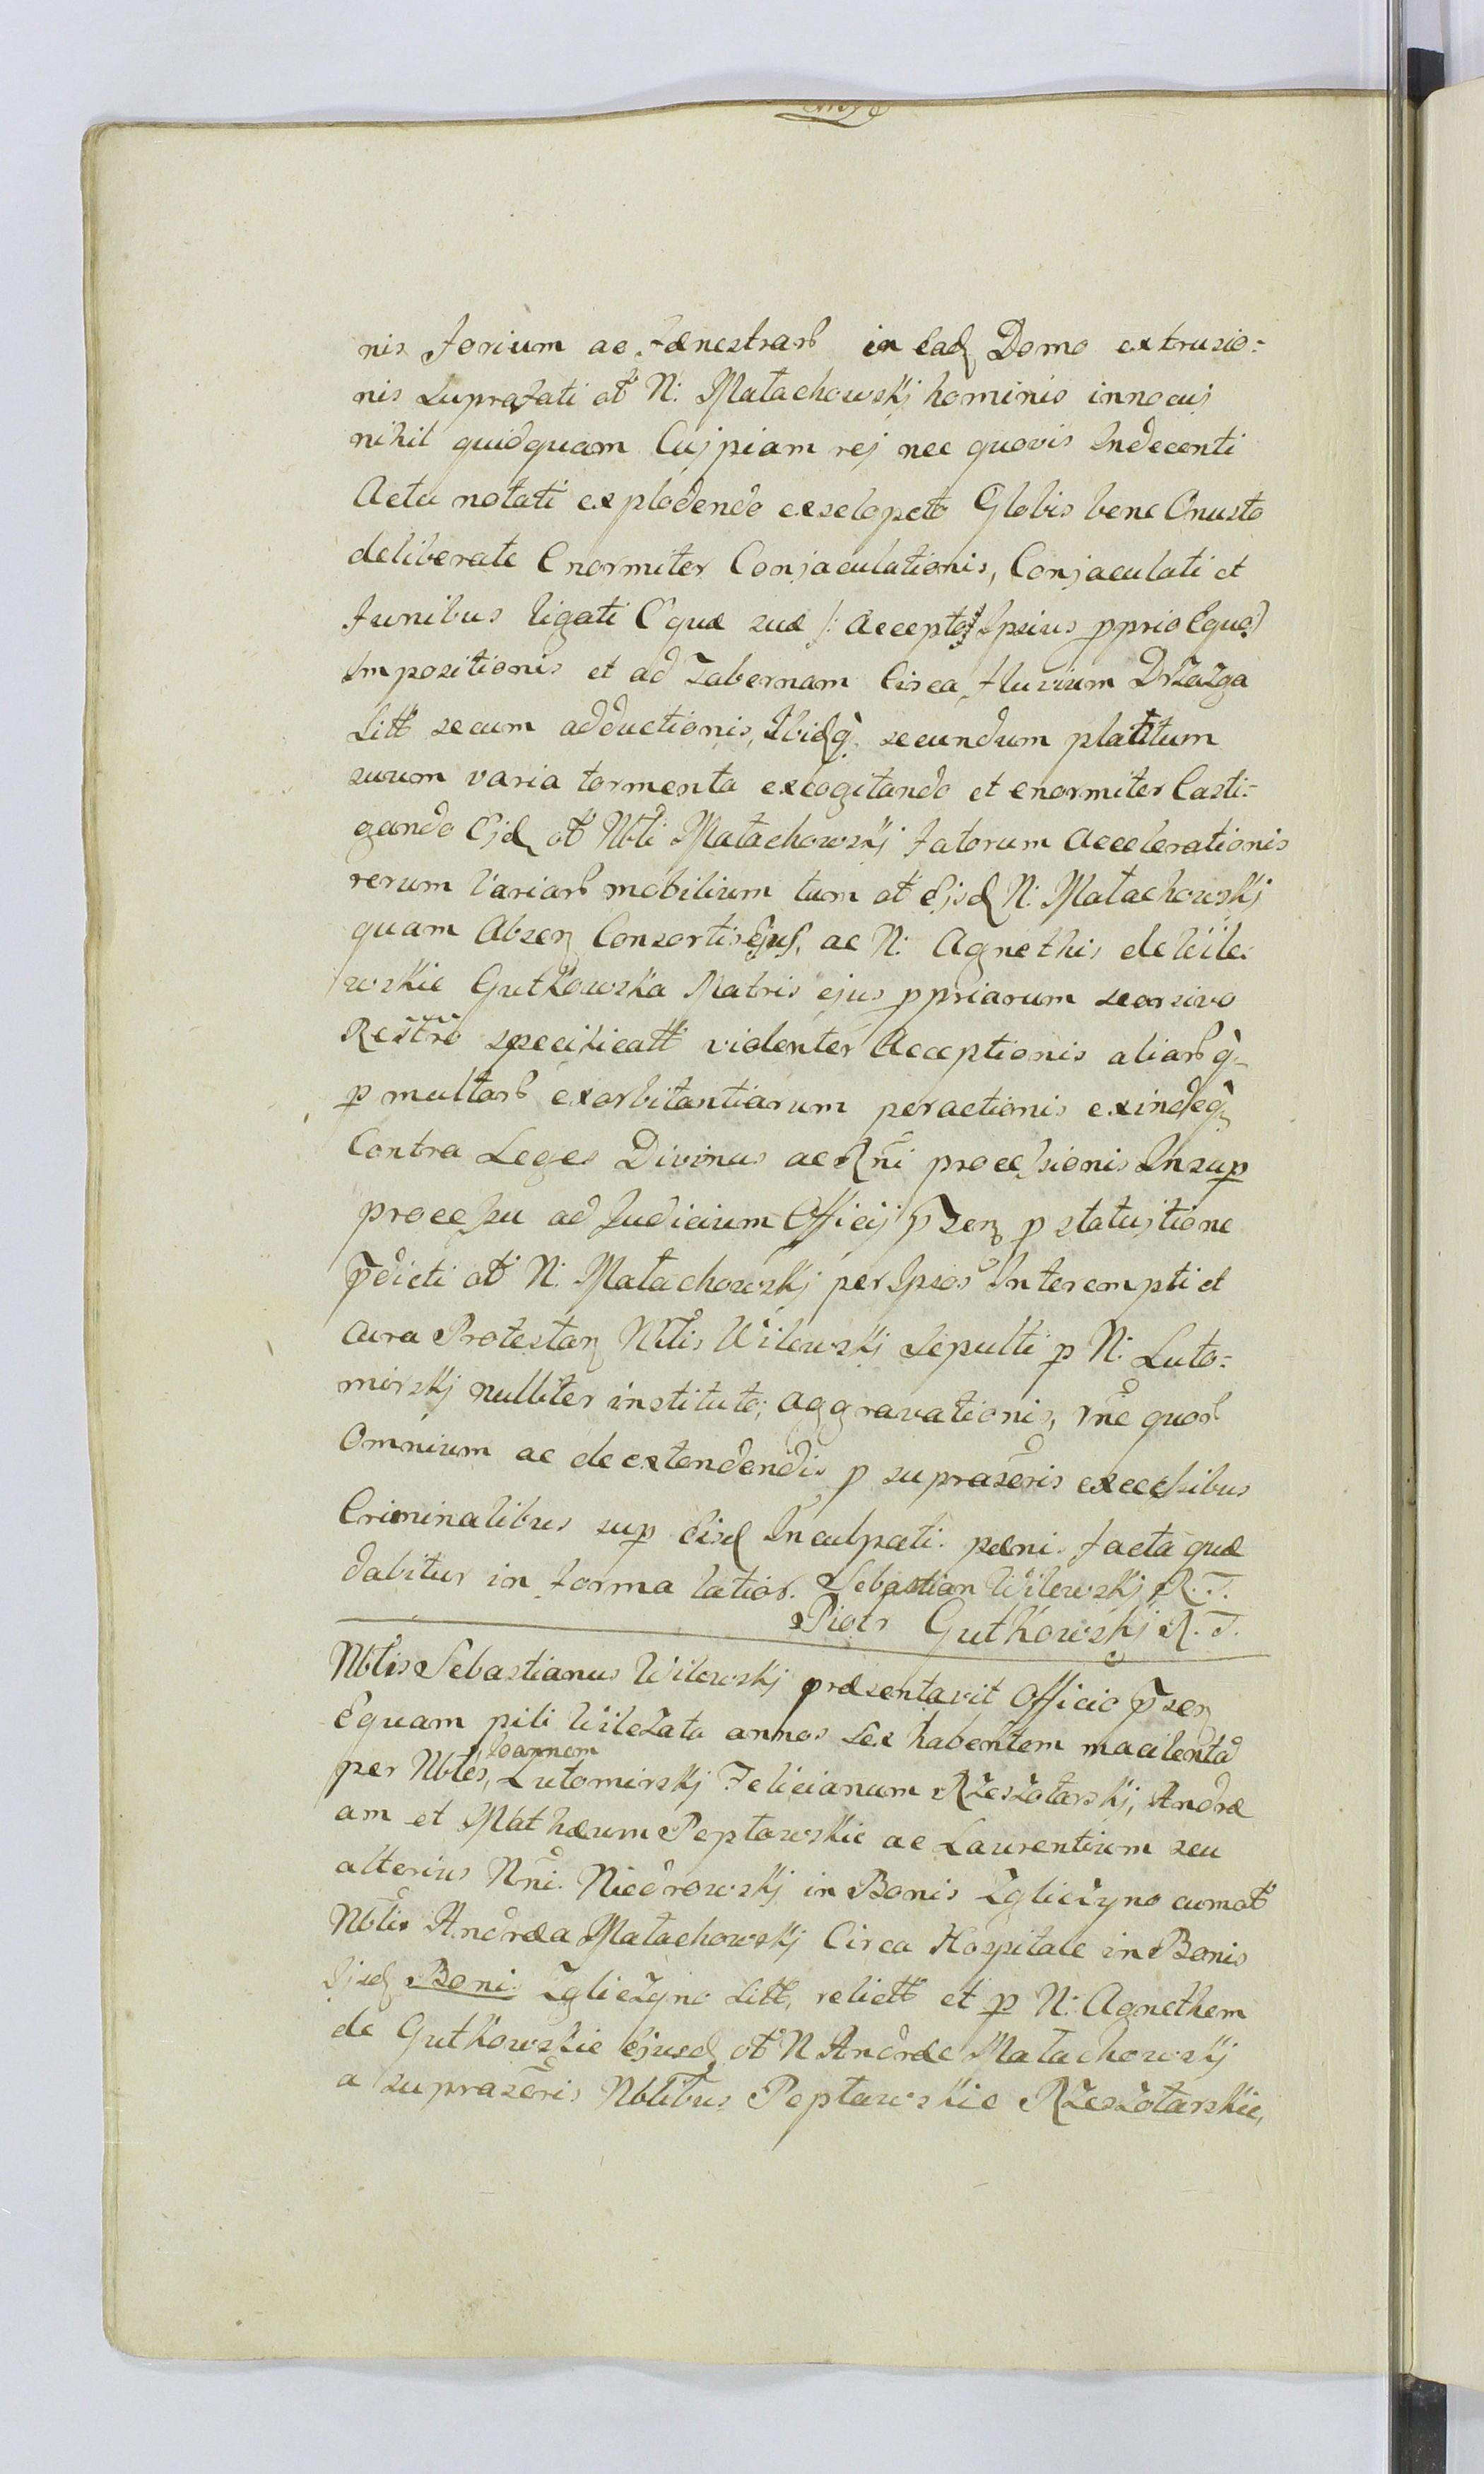 nis forium ac fænestrarb in ead Domo extrusio=
nis suprafati ol N: Małachowskj hominis innocuj
nihil quidquam Cujpiam rej nec quovis Indecenti
Actu notati explodendo exselopeto Globis bene Onusto
deliberate Enormiter Conjaculationis, Conjaculati et
funibus ligati Equæ suæ /: accepto Ipsius pprio Equo/
Impositionis et ad Tabernam Circa fluvium Drzazga
sitt secum adductionis, Ibidq secundum platitum
suum varia tormenta excogitando et enormiter Casti=
gando Ejd ol Nbli Małachowskj fatorum Accelerationis
rerum Variarb mobilium tum ol Ejsd N: Małachowskj
quam Absen Consortis Ejus, ac N: Agnethis de Wile:
wskie Gutkowska Matris ejus ppriarum seorsivo
Restro specificatt violenter Acceptionis aliarbq
p multarb exorbitantiarum peractionis exindeq
Contra Leges Divinas ac Rni processionis Insup
processu ad Judicium Officij Psen p statuitione
Pdicti ol N: Małachowskj per Ipsos Interempti et
cura Protestan Nblis Wilewskj Sepulti p N: Luto=
mirskj nulliter instituto; aggravationis, rne quorb
Omnium ac de extendendis p suprasєris excessibus
Criminalibus sup Eisd Inculpati: pæni: facta quæ
dabitur in forma latior. Sebastian Wilewskj R. T.
Piotr Gutkowskj R. T.
Nblis Sebastianus Wilewskj præsentavit Officio Psen
Equam pili Wilczata annos sex habentem macilentā
per Nbles, Joannem Lutomirskj Felicianum Rzeszotarskj, Andræ
am et Mathæum Peptowskie ac Laurentium seu
alterius Nni: Niedrowskj in Bonis Zglieczyno cum ol
Nbli Andræa Małachowskj Circa Hospitale in Bonis
Ejsd Boni: Zgliczyno sitt, relictt et p N: Agnethem
de Gutkowskie Ejusd ol N Andræe Małachowskj
a suprasєris Nblibus Peptawskie Rzeszotarskie,